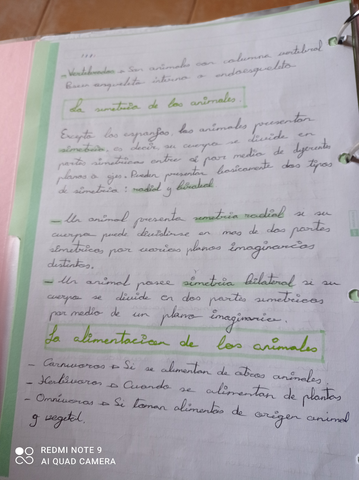 - Vertebrados → Son animales con columna vertebral
Poseen esqueleto interno o endoesqueleto
La simetria de los animales.
Excepto las esponjas, los animales presentan
simetria, es decir, su cuerpo se divide en
partes simétricas entre sí por medio de diferentes
planos o ejes. Pueden presentar basicamente dos tipos
de simetria: radial y bilateral
- Un animal presenta simetria radial si su
cuerpo puede dividirse en mas de dos partes
simetricas por varios planos imaginarios
distintos.
- Un animal posee simetria bilateral si su
cuerpo se divide en dos partes simetricas
por medio de un plano imaginario.
La alimentacion de los animales
- Carnivoros → Si se alimentan de otros animales
- Herbivoros → Cuando se alimentan de plantas
- Omnivoros → Si toman alimentos de origen animal
y vegetal.
REDMI NOTE 9
AI QUAD CAMERA